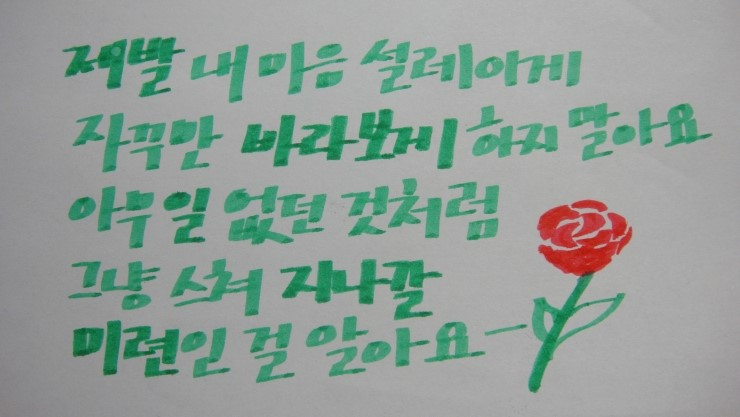 제발 내 마음 설레이게
자꾸만 바라보게 하지 말아요
아무일 없던 것처럼
그냥 스쳐 지나갈
미련인 걸 알아요